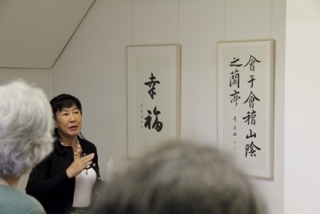 幸
福
會于會稽山陰
之蘭亭